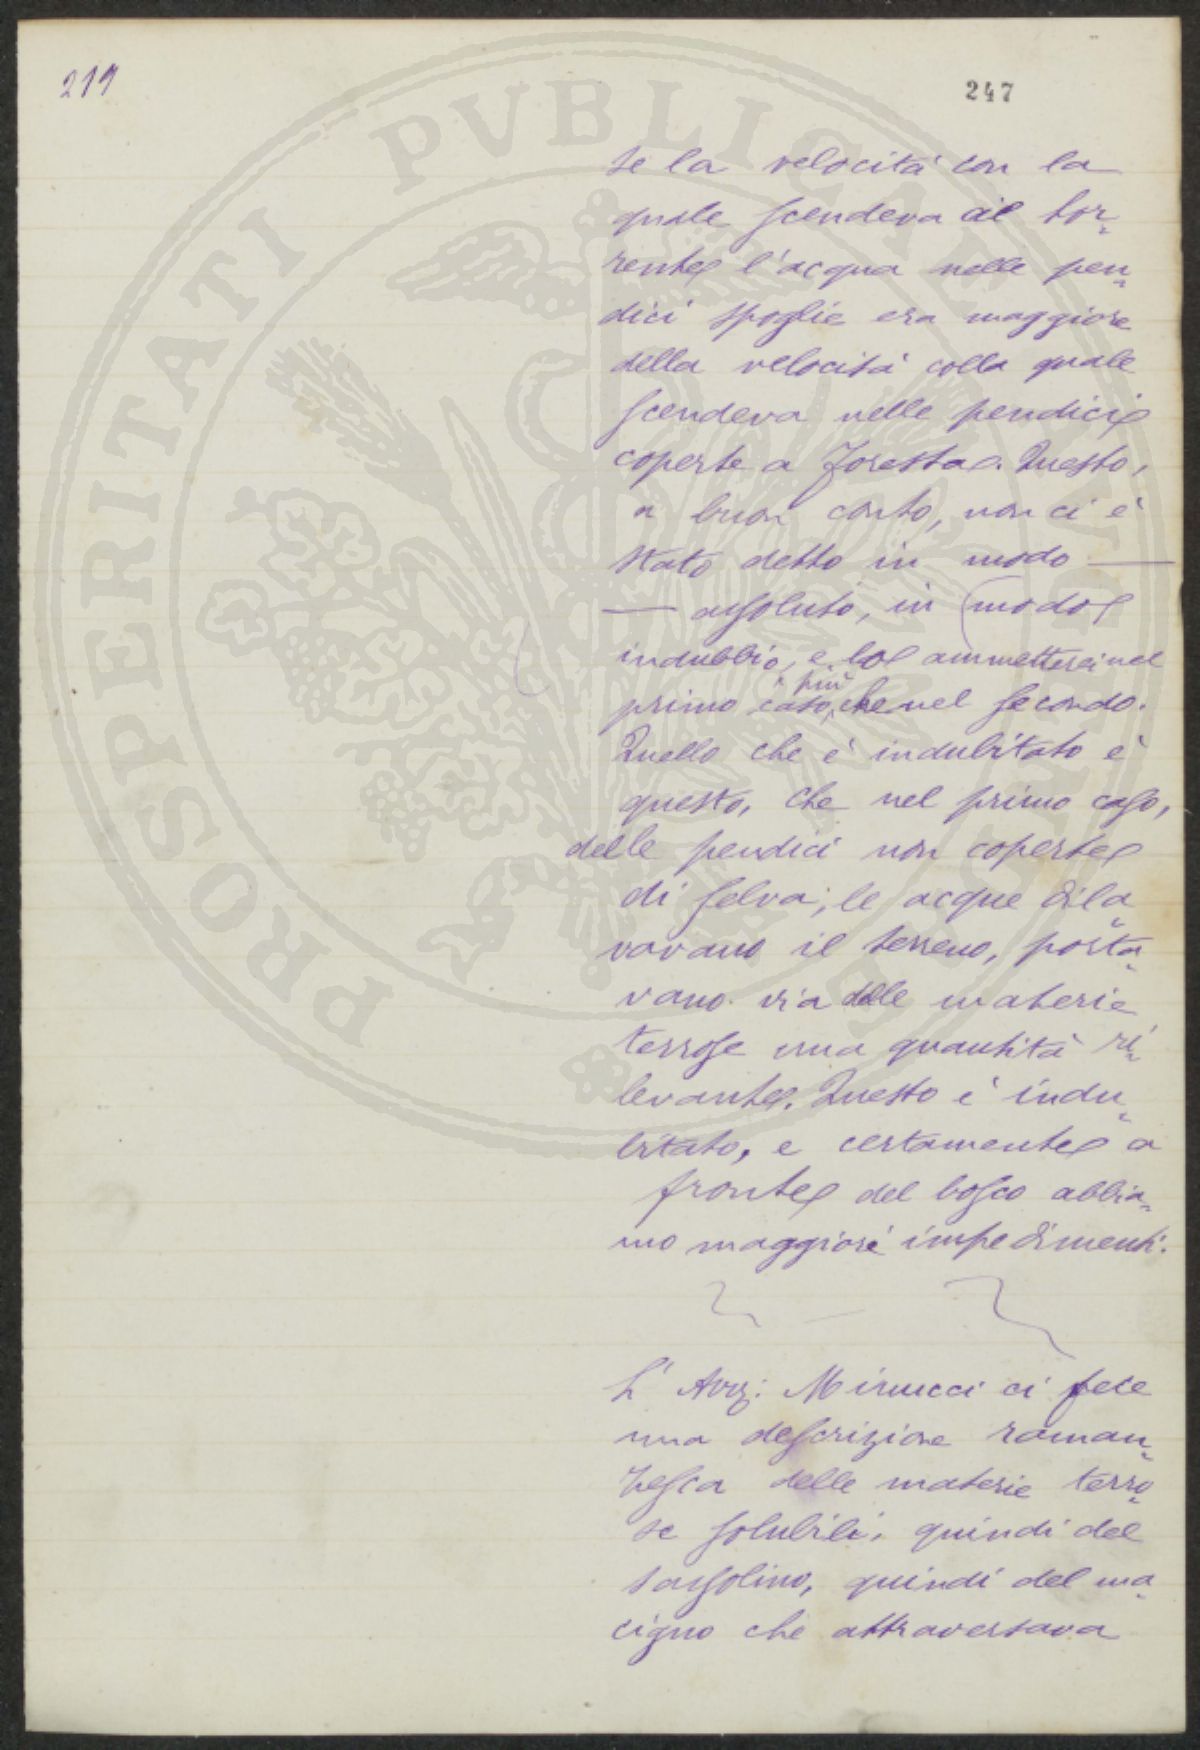 219
247
se la velocità con la
quale scendeva al tor-
rente l'acqua nelle pen-
dici spoglie era maggiore
della velocità colla quale
scendeva nelle pendici
coperte a foresta. Questo,
a buon conto, non ci è
stato detto in modo
assoluto, in modo
indubbio, e lo ammetterei nel
più
primo caso, che nel secondo.
Quello che è indubitato è
questo, che nel primo caso,
delle pendici non coperte
di selva, le acque dila-
vavano il terreno, porta-
vano via delle materie
terrose una quantità ri-
levante. Questo è indu-
bitato, e certamente a
fronte del bosco abbia-
mo maggiori impedimenti.
L'Avv: Minucci ci fece
una descrizione roman-
zesca delle materie terro-
se solubili, quindi del
sassolino, quindi del ma-
cigno che attraversava
PROSPERITATI PVBLICAE AVGENDAE